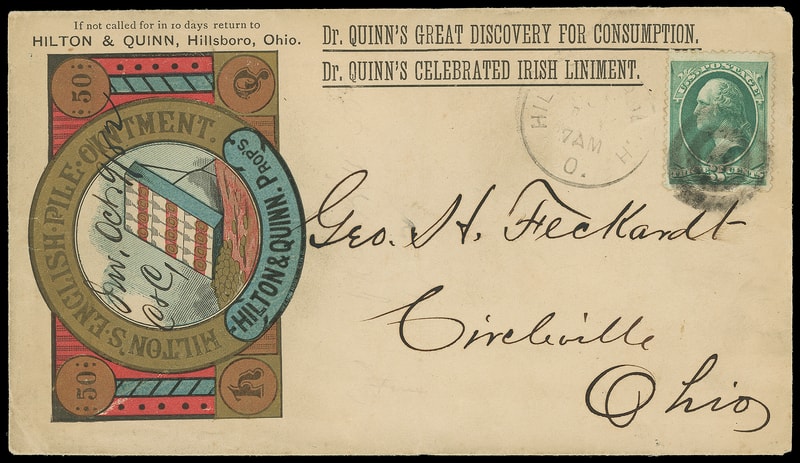 If not called for in 10 days return to
HILTON & QUINN, Hillsboro, Ohio.
Dr. QUINN'S GREAT DISCOVERY FOR CONSUMPTION.
Dr. QUINN'S CELEBRATED IRISH LINIMENT.
50
Q
HILTON'S·ENGLISH·PILE·OINTMENT.
HILTON & QUINN. PROP'S
50
H
U.S. POSTAGE
HIL
7AM
O.
Geo. H. Feckardt
Circleville
Ohio